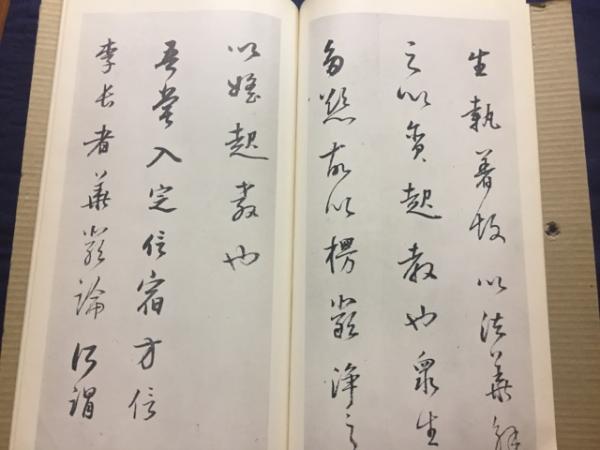 生執著故以法華解
之以貪起教也眾生
多慾故以楞嚴淨之
以婬起教也
吾嘗入定信宿方信
李長者華嚴論所謂